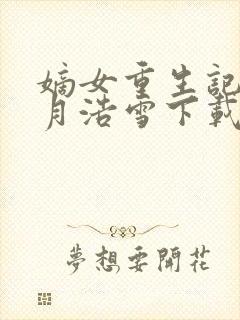 嫡女重生記
月浩雪下載
夢想要開花